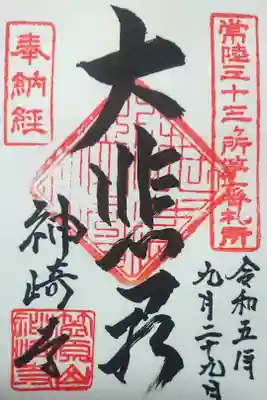 常陸三十三ヶ所
番札所
令和五年
九月二十九日
大悲殿
奉納経
神崎寺